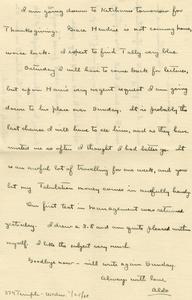 I am going down to Ketchums tomorrow for
Thanksgiving. Dave Hendrie is not coming home,
worse luck. I expect to find Tally very blue.
Saturday I will have to come back for lectures,
but upon Haric's very urgent request I am going
down to his place over Sunday. It is probably the
last chance I will have to see him, and as they have
invited me so often I thought I had better go. It
is an awful lot of travelling for one week, and your
bit my Tabulation money comes in awfully handy.
Our first test in Management was returned
yesterday. I drew a 3.8 and am quite pleased with
myself. I like the subject very much.
Goodbye now - will write again Sunday.
Always with love,
Aldo